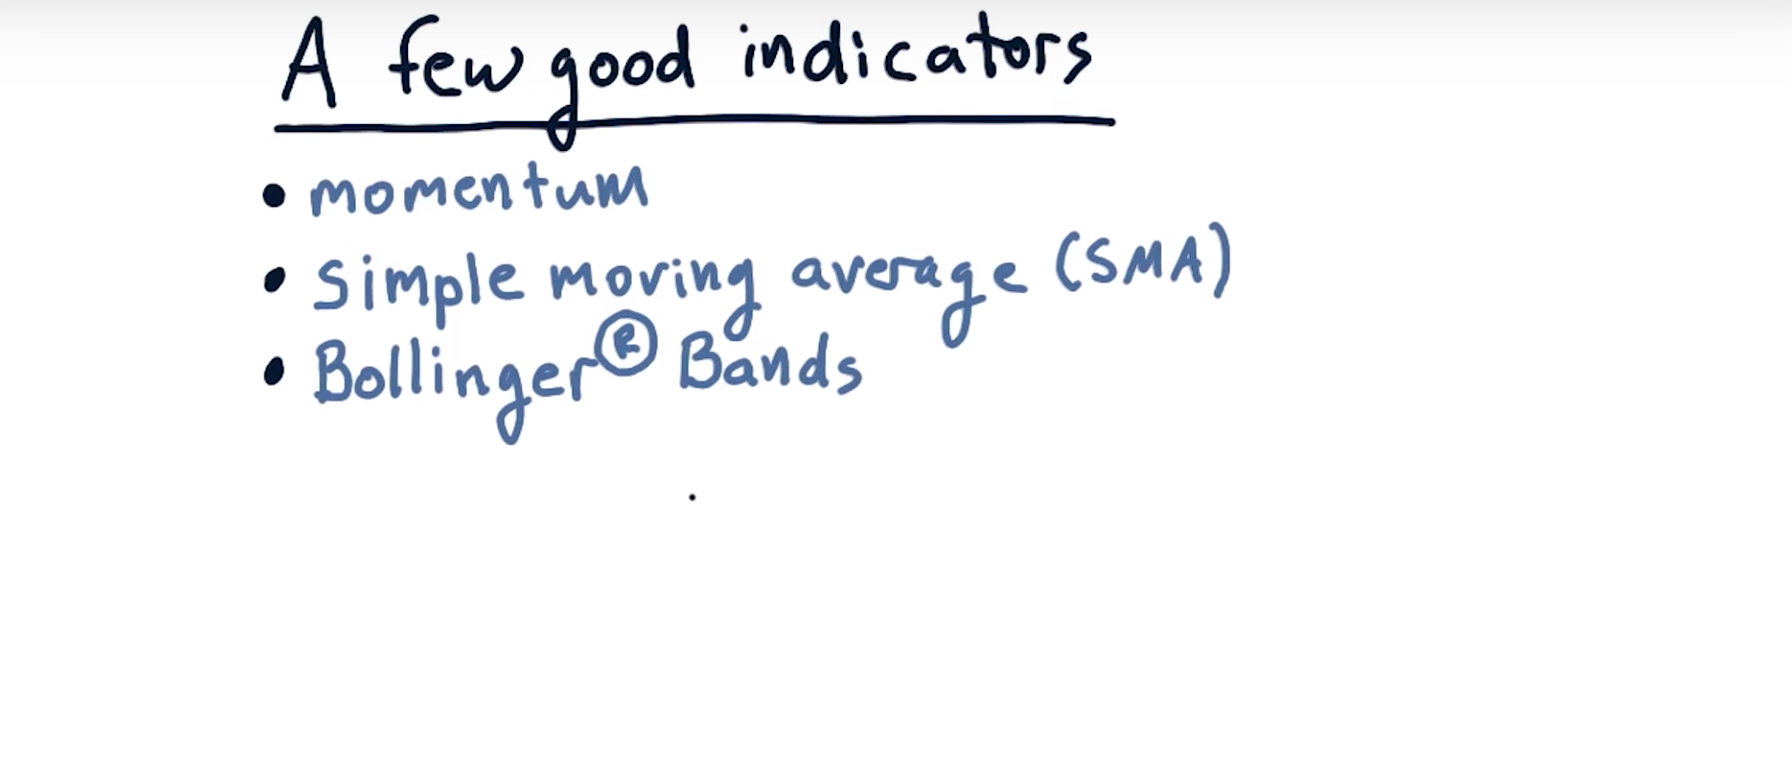 A few good indicators
• momentum
• simple moving average (SMA)
• Bollinger® Bands